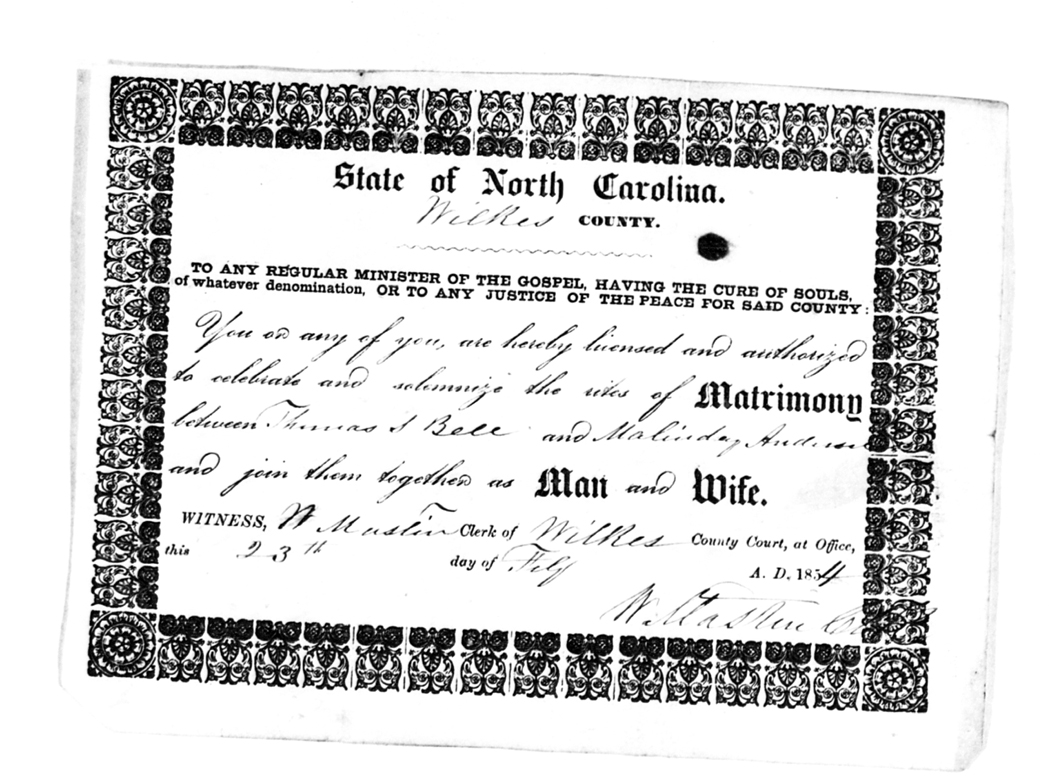 State of North Carolina.
Wilkes COUNTY.
TO ANY REGULAR MINISTER OF THE GOSPEL, HAVING THE CURE OF SOULS,
of whatever denomination, OR TO ANY JUSTICE OF THE PEACE FOR SAID COUNTY:
You or any of you, are hereby licensed and authorized
to celebrate and solemnize the rites of Matrimony
between Thomas S Bell and Malinda
and join them together as Man and Wife.
WITNESS, W Mastin Clerk of Wilkes County Court, at Office,
this 23th day of Feb A. D. 1854
W. Mastin